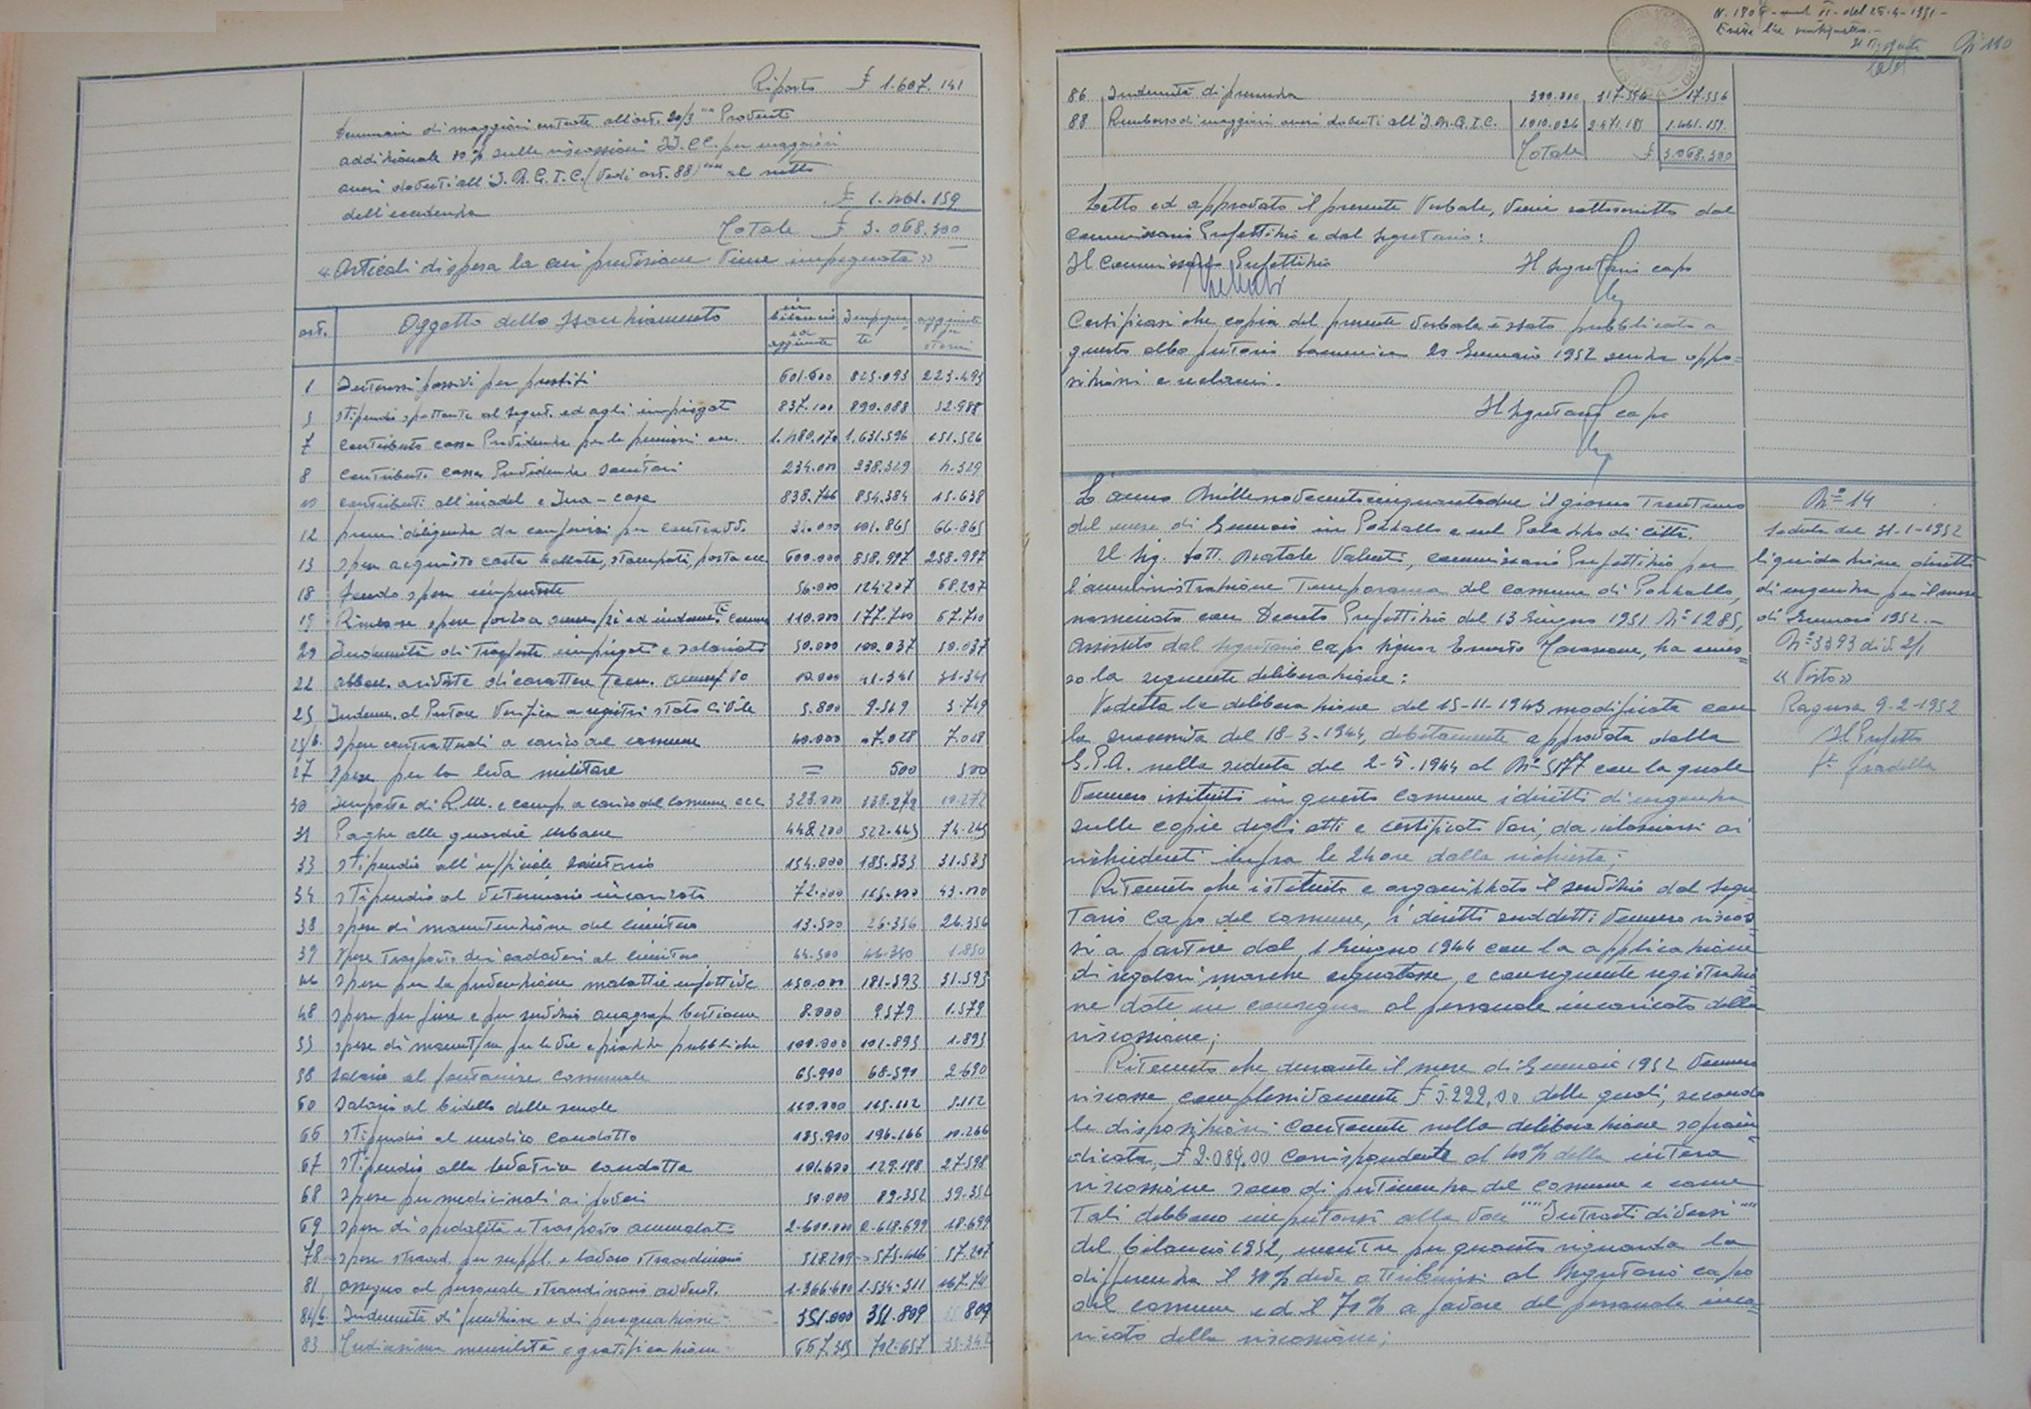 Riporto £ 1.607.141
Sommario di maggiori entrate all'art. 20/3 Proventi
addizionale 10% sulle riscossioni II.CC. per maggiori
oneri dovuti all'I.N.G.I.C. (vedi art. 88) al netto
dell'eccedenza £ 1.461.159
Totale £ 3.068.300
"Articoli di spesa la cui previsione viene impegnata"
art. Oggetto dello stanziamento in bilancio ed aggiunte Impegnate aggiunte storni
1 Interessi passivi per prestiti 601.600 825.093 223.493
3 Stipendio spettante al segret. ed agli impiegati 837.100 890.088 52.988
7 Contributo cassa Previdenza per le pensioni ecc. 1.480.070 1.631.596 151.526
8 Contributi cassa Previdenza sanitari 234.000 238.329 4.329
10 contributi all'inadel e Ina-casa 838.746 854.384 15.638
12 101.865 66.865
13 Spese acquisto carta bollata, stampati, posta ecc. 600.000 858.997 258.997
18 Fondo spese impreviste 56.000 124.207 68.207
19 110.000 177.700 67.700
20 Indennità di trasferte impiegati e salariati 50.000 100.037 50.037
22 10.000 41.341 31.341
25 Indenn. al Pretore verifica a registri stato civile 5.800 9.549 3.749
25/b. Spese contrattuali a carico del comune 40.000 47.028 7.028
27 Spese per la leva militare = 500 500
30 Imposta di R.M. e comp. a carico del Comune ecc. 328.000 338.272 10.272
31 Paghe alle guardie urbane 448.200 522.443 74.243
33 Stipendio all'ufficiale sanitario 154.000 185.533 31.533
34 Stipendio al veterinario incaricato 72.000 115.000 43.000
38 Spese di manutenzione del cimitero 13.500 26.356 26.356
39 Spese trasporto dei cadaveri al cimitero 44.500 46.350 1.850
44 Spese per la prevenzione malattie infettive 150.000 181.593 31.593
48 Spese per fiere e per servizio anagraf. bestiame 8.000 9579 1.579
53 Spese di manutenz. per le vie e piazze pubbliche 100.000 101.893 1.893
58 Salario al fontaniere comunale 65.900 68.590 2.690
60 Salario al bidello delle scuole 110.000 115.112 5.112
66 Stipendio al medico condotto 185.900 196.166 10.266
67 Stipendio alla levatrice condotta 101.600 129.198 27.598
68 Spese per medicinali ai poveri 50.000 89.352 39.352
69 Spese di spedalità e trasporto ammalati 2.600.000 2.618.699 18.699
78 Spese straord. per suppl. e lavoro straordinario 518.209 575.416 57.207
81 Assegno al personale straordinario avvent. 1.366.600 1.534.311 167.71
81/b. Indennità di funzione e di perequazione 351.000 351.809 809
83 Tredicesima mensilità e gratificazione 667.315 702.657 35.342
Nº 110
86 Indennità di presenza 300.000 317.556 17.556
88 Rimborso di maggiori oneri dovuti all'I.N.G.I.C. 1.010.026 2.471.185 1.461.159
Totale £ 3.068.300
Letto ed approvato il presente Verbale, viene sottoscritto dal
Commissario Prefettizio e dal Segretario:
Il Commissario Prefettizio Il Segretario capo
Certificasi che copia del presente Verbale è stato pubblicata a
questo albo pretorio domenica 20 Gennaio 1952 senza oppo=
sizioni e reclami.
Il Segretario capo
L'anno Millenovecentocinquantadue il giorno trentuno
del mese di Gennaio in Pozzallo e nel Palazzo di Città.
Il Sig. Dott. Natale Valenti, commissario Prefettizio per
l'amministrazione temporanea del comune di Pozzallo,
nominato con Decreto Prefettizio del 13 Giugno 1951 Nº 1285,
assistito dal Segretario Capo Signor Ernesto, ha emes=
so la seguente deliberazione:
Veduta la deliberazione del 15-11-1943 modificata con
la successiva del 18-3-1944, debitamente approvata dalla
G.P.A. nella seduta del 2-5-1944 al Nº 5177 con la quale
vennero istituiti in questo comune i diritti di urgenza
sulle copie degli atti e certificati vari, da rilasciarsi ai
richiedenti infra le 24 ore dalla richiesta;
Ritenuto che istituito e organizzato il servizio dal Segre=
tario Capo del comune, i diritti suddetti vennero riscos=
si a partire dal 1 Giugno 1944 con la applicazione
di regolari marche segnatasse, e conseguente registrazio=
ne date in consegna al personale incaricato della
riscossione;
Ritenuto che durante il mese di Gennaio 1952 vennero
riscosse complessivamente £ 5.222,00 delle quali, secondo
le disposizioni contenute nella deliberazione soprain=
dicata, £ 2.089.00 corrispondente al 40% della intera
riscossione sono di pertinenza del comune e come
tali debbono imputarsi alla voce "Introiti diversi"
del bilancio 1952, mentre per quanto riguarda la
differenza il 30% deve attribuirsi al Segretario capo
del comune ed il 70% a favore del personale inca=
ricato della riscossione;
Nº 14
Seduta del 31-1-1952
liquidazione diritti
di urgenza per il mese
di Gennaio 1952.-
Nº 3393 div. 2/1
"Visto"
Ragusa 9-2-1952
Il Prefetto
fto Gradella